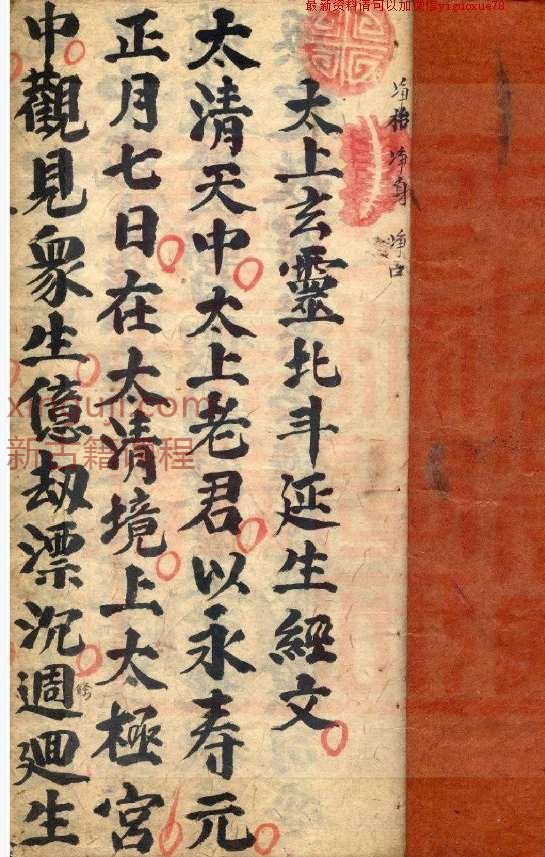 最新资料请可以加微信yiguoxue78
净身 净口
太上玄靈北斗延生經文
太清天中太上老君以永寿元
正月七日在太清境上太極宮
中觀見衆生億劫漂沉週廻生
xinguji.com
新古籍程